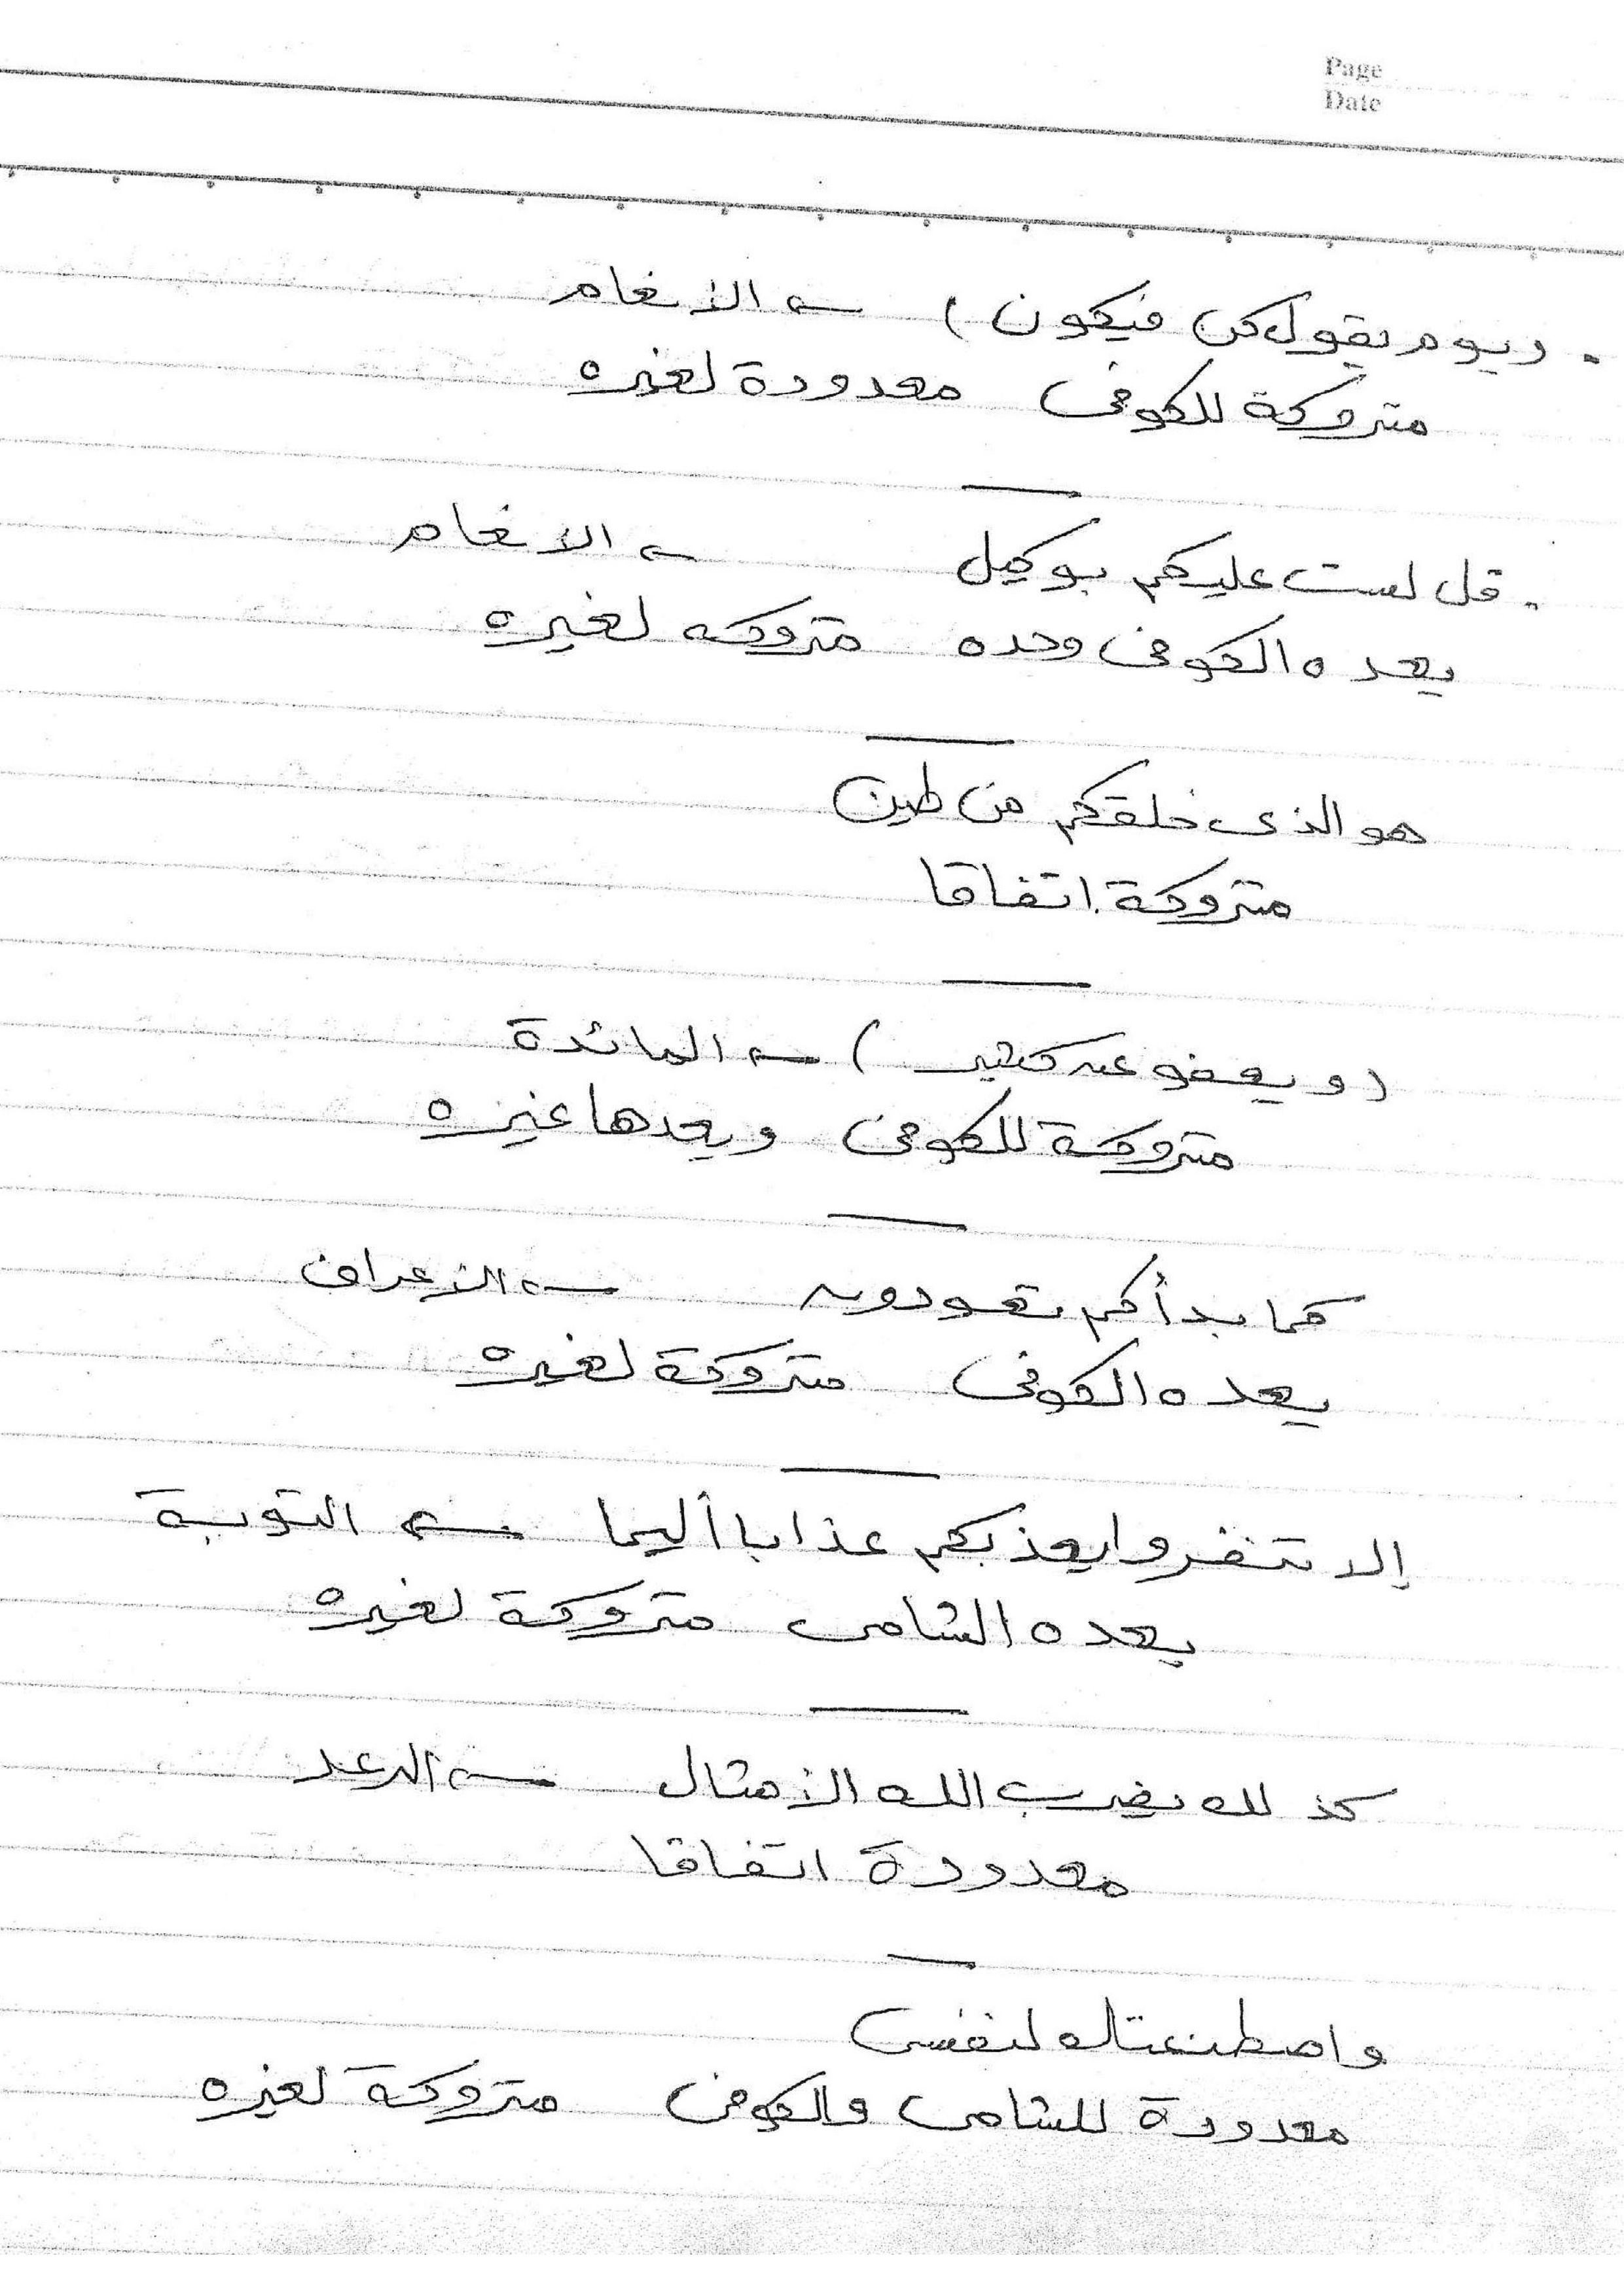 Page
Date
. ويوم يقول كن فيكون ) ← الانعام
متروكة للكوفى معدودة لغيره
. قل لست عليكم بوكيل ← الانعام
يعده الكوفى وحده متروكه لغيره
هو الذى خلقكم من طين
متروكة اتفاقا
( ويعفو عن كثير ) ← المائدة
متروكة للكوفى ويعدها غيره
كما بدأكم تعودون ← الأعراف
يعده الكوفى متروكة لغيره
إلا تنفروا يعذبكم عذابا أليما ← التوبة
يعده الشامى متروكة لغيره
كذلك يضرب الله الأمثال ← الرعد
معدودة اتفاقا
واصطنعتك لنفسى
معدودة للشامى والكوفى متروكة لغيره